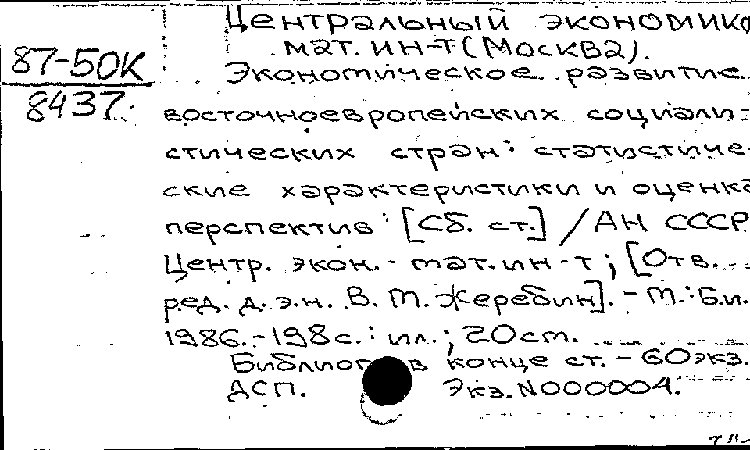 Центральный экономико
мат. ин-т (Москва).
87-50К
8437.
Экономическое развитие
восточноевропейских социали-
стических стран: статистиче-
ские характеристики и оценка
перспектив: [Сб. ст.] / АН СССР
Центр. экон.-мат. ин-т; [Отв.
ред. д.э.н. В. М. Жеребин]. - М.: Б.и.
1986. - 198 с.: ил.; 20 cm.
Библиог в конце ст. - 60 экз.
ДСП. Экз. N000004.